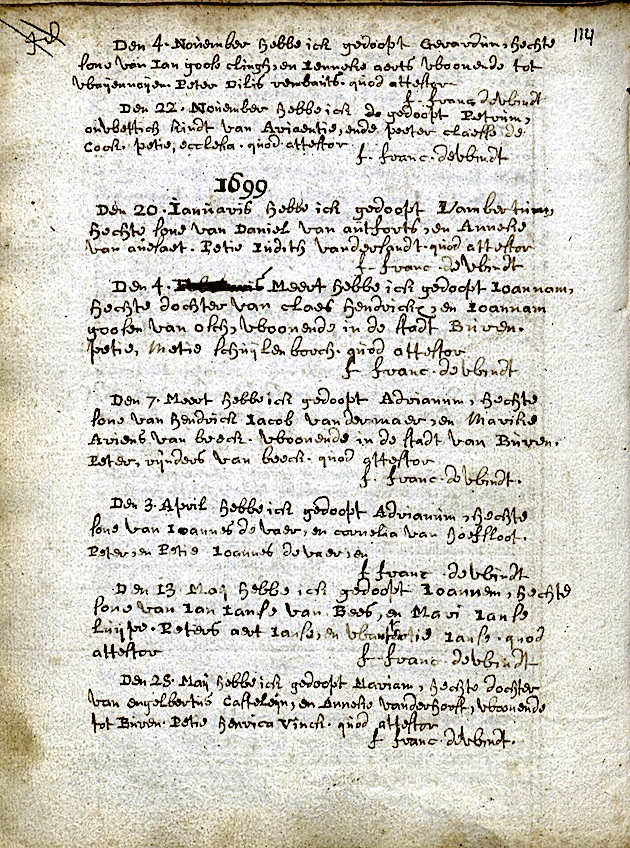 114
Den 4. November hebbe ick gedoopt Gerardum, hechte
sone van Ian goose clingh, en Ienneke aerts vboonende tot
Peter Dilis rembauts. quod attestor
f. franc. devbindt
Den 22. November hebbe ick gedoopt Petrum,
onbettich kindt van Ariaentie, ende peeter claesse de
Cock. petie, ecclesia. quod attestor
f. franc. devbindt
1699
Den 20. Ianuaris hebbe ick gedoopt Lambertum,
hechte sone van Daniel van anthorts, en Anneke
van auesaet. Petie Iudith vandersandt. quod attestor
f. franc. devbindt
Den 4. Meert hebbe ick gedoopt Ioannam,
hechte dochter van claes Hendrickx, en Ioannam
goosen van osch, vboonende in de stadt Buren.
petie, Metie schuylenborch. quod attestor
f franc. devbindt
Den 7. Meert hebbe ick gedoopt Adrianum, hechte
sone van Hendrick Iacob vandermaer, en Marike
Ariens van beeck. vboonende in de stadt van Buren.
Peter, rynders van beeck. quod attestor
f. franc. devbindt.
Den 3. April hebbe ick gedoopt Adrianum, hechte
sone van Ioannes de vaer, en cornelia van hoefsloot.
Peter, en Petie Ioannes de vaer, en
f franc. devbindt
Den 13. Maij hebbe ick gedoopt Ioannem, hechte
sone van Ian Ianse van Bees, en Mari Ianse
kuijpe. Peters aert Ianse, en Ianse. quod
attestor f. franc. devbindt
Den 28. Maij hebbe ick gedoopt Mariam, hechte dochter
van engelbertus Casteleijn, en Anneke vanderhooft, vboonende
tot Buren. Petie Henrica Vinck. quod attestor
f franc. devbindt.